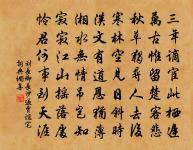 三年謫宦此栖遲
萬古惟留楚客悲
秋草獨尋人去後
寒林空見日斜時
漢文有道恩猶薄
湘水無情吊豈知
寂寂江山搖落處
憐君何事到天涯
劉長卿長沙過賈誼宅
詞典網